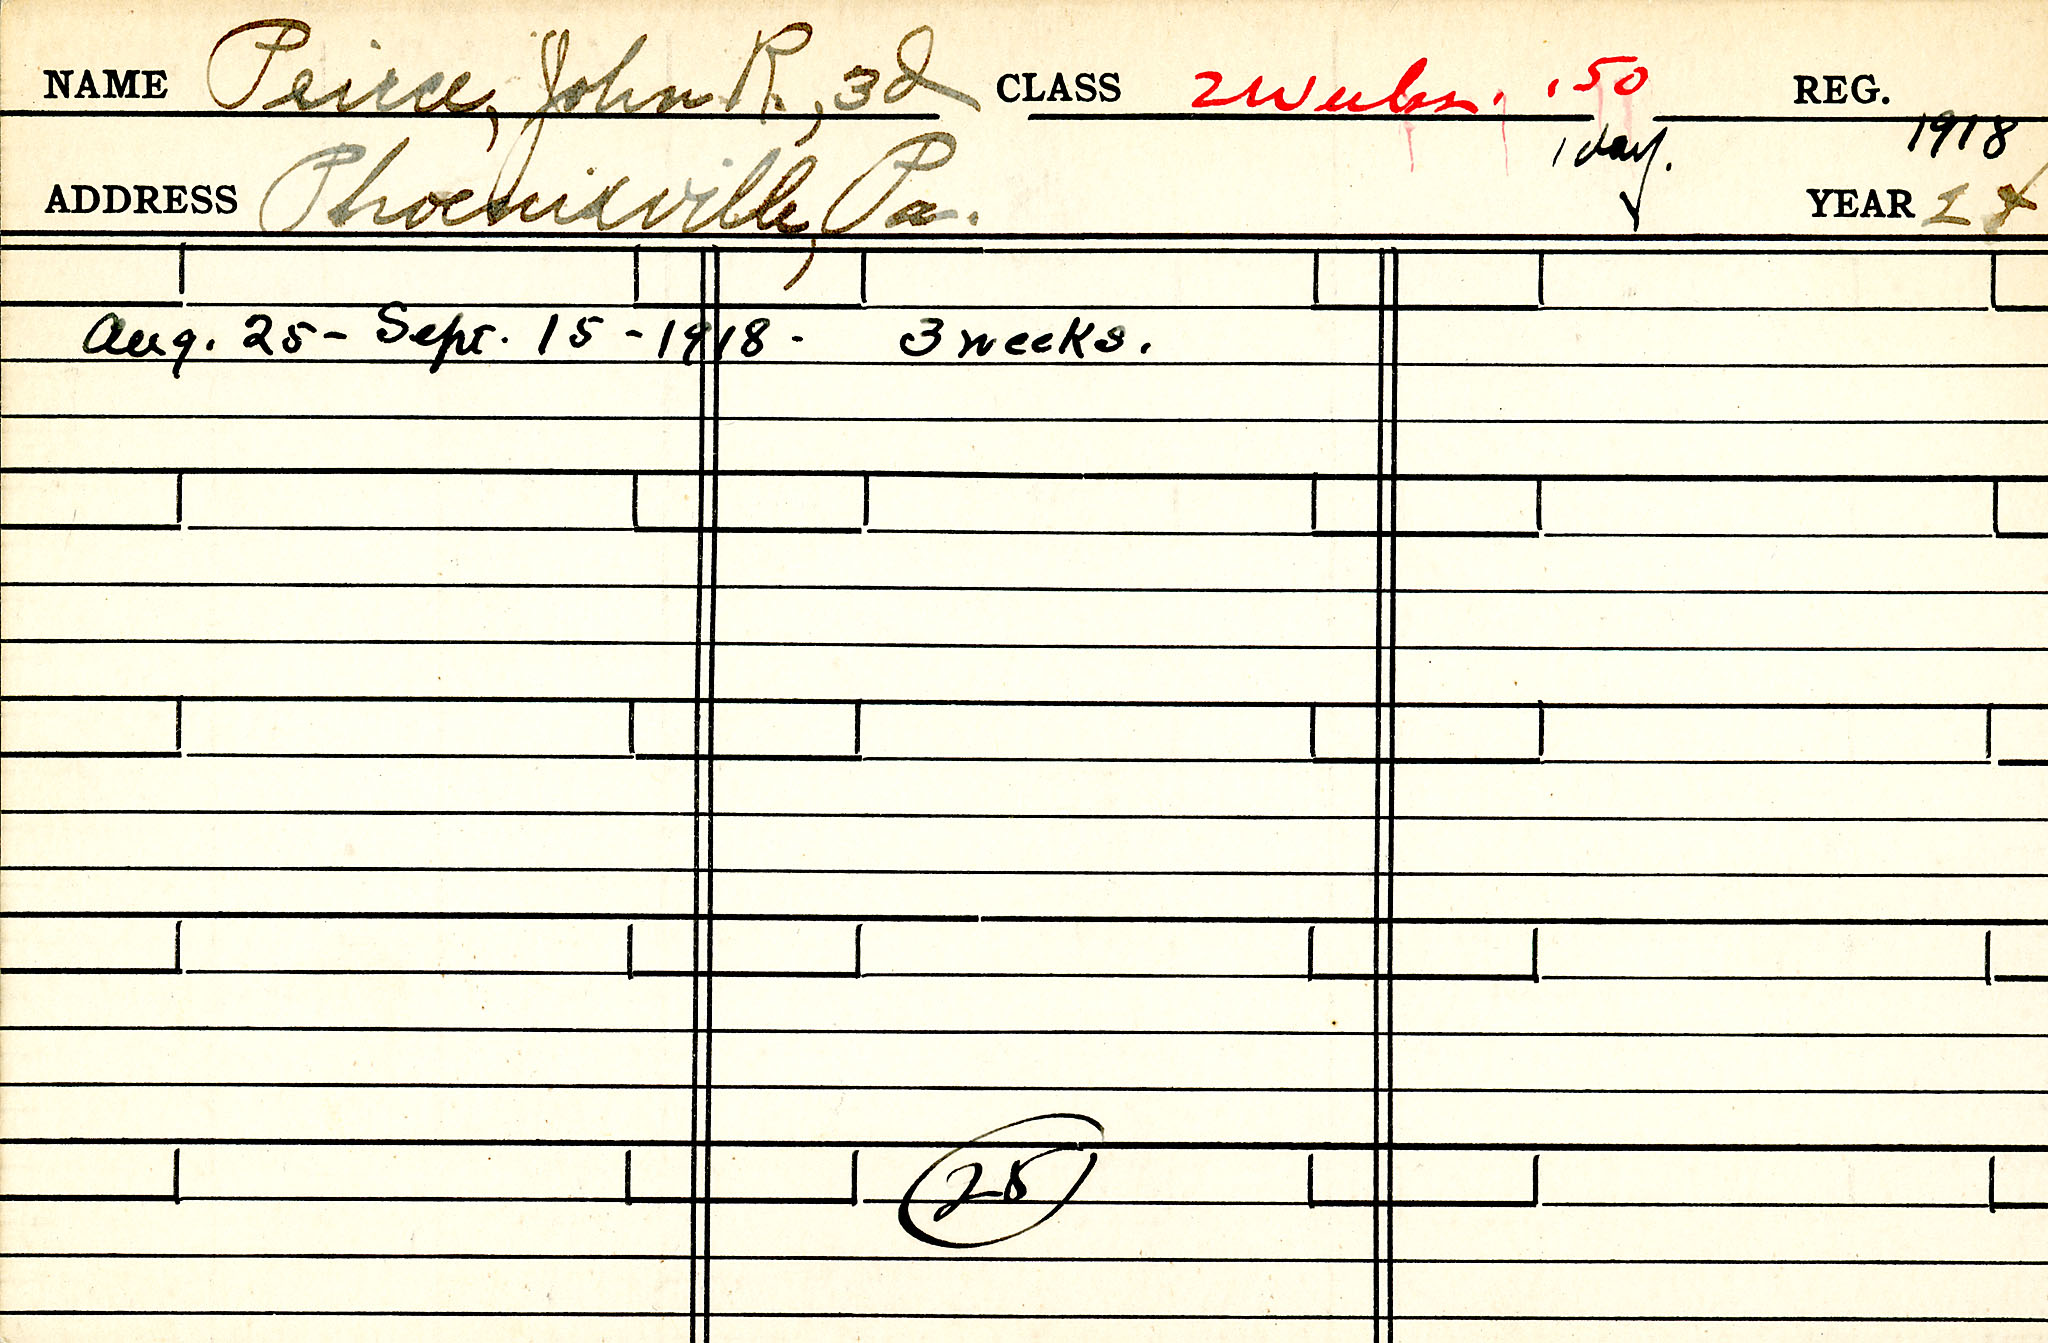 NAME Peirce, John R., 3d CLASS 2 Weeks. .50 REG.
1 day. 1918
ADDRESS Phoenixville, Pa. YEAR
Aug. 25 - Sept. 15 - 1918 - 3 weeks.
25